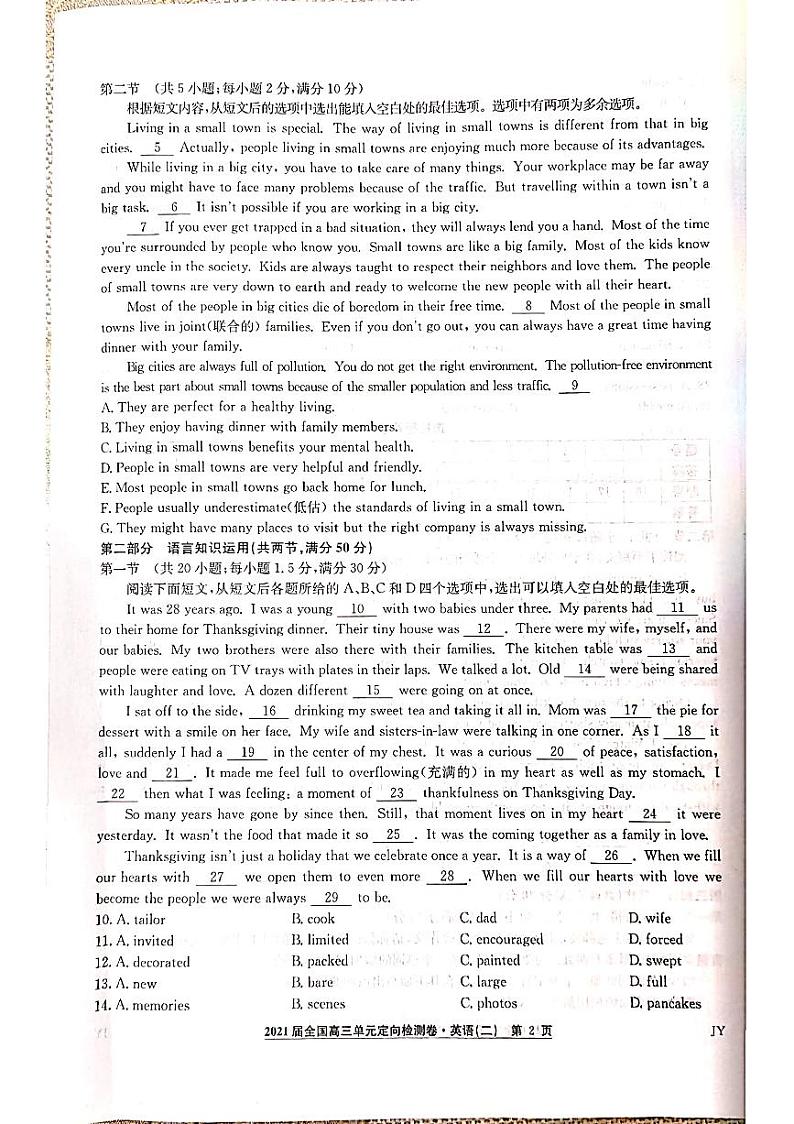 第二节 (共5小题;每小题2分,满分10分)
根据短文内容,从短文后的选项中选出能填入空白处的最佳选项。选项中有两项为多余选项。
Living in a small town is special. The way of living in small towns is different from that in big
cities. 5 Actually, people living in small towns are enjoying much more because of its advantages.
While living in a big city, you have to take care of many things. Your workplace may be far away
and you might have to face many problems because of the traffic. But travelling within a town isn't a
big task. 6 It isn't possible if you are working in a big city.
7 If you ever get trapped in a bad situation, they will always lend you a hand. Most of the time
you're surrounded by people who know you. Small towns are like a big family. Most of the kids know
every uncle in the society. Kids are always taught to respect their neighbors and love them. The people
of small towns are very down to earth and ready to welcome the new people with all their heart.
Most of the people in big cities die of boredom in their free time. 8 Most of the people in small
towns live in joint(联合的) families. Even if you don't go out, you can always have a great time having
dinner with your family.
Big cities are always full of pollution. You do not get the right environment. The pollution-free environment
is the best part about small towns because of the smaller population and less traffic. 9
A. They are perfect for a healthy living.
B. They enjoy having dinner with family members.
C. Living in small towns benefits your mental health.
D. People in small towns are very helpful and friendly.
E. Most people in small towns go back home for lunch.
F. People usually underestimate(低估) the standards of living in a small town.
G. They might have many places to visit but the right company is always missing.
第二部分 语言知识运用(共两节,满分50分)
第一节 (共20小题;每小题1.5分,满分30分)
阅读下面短文,从短文后各题所给的A、B、C和D四个选项中,选出可以填入空白处的最佳选项。
It was 28 years ago. I was a young 10 with two babies under three. My parents had 11 us
to their home for Thanksgiving dinner. Their tiny house was 12 . There were my wife, myself, and
our babies. My two brothers were also there with their families. The kitchen table was 13 and
people were eating on TV trays with plates in their laps. We talked a lot. Old 14 were being shared
with laughter and love. A dozen different 15 were going on at once.
I sat off to the side, 16 drinking my sweet tea and taking it all in. Mom was 17 the pie for
dessert with a smile on her face. My wife and sisters-in-law were talking in one corner. As I 18 it
all, suddenly I had a 19 in the center of my chest. It was a curious 20 of peace, satisfaction,
love and 21 . It made me feel full to overflowing(充满的) in my heart as well as my stomach. I
22 then what I was feeling: a moment of 23 thankfulness on Thanksgiving Day.
So many years have gone by since then. Still, that moment lives on in my heart 24 it were
yesterday. It wasn't the food that made it so 25 . It was the coming together as a family in love.
Thanksgiving isn't just a holiday that we celebrate once a year. It is a way of 26 . When we fill
our hearts with 27 we open them to even more 28 . When we fill our hearts with love we
become the people we were always 29 to be.
10. A. tailor B. cook C. dad D. wife
11. A. invited B. limited C. encouraged D. forced
12. A. decorated B. packed C. painted D. swept
13. A. new B. bare C. large D. full
14. A. memories B. scenes C. photos D. pancakes
2021届全国高三单元定向检测卷·英语(二) 第2页 JY